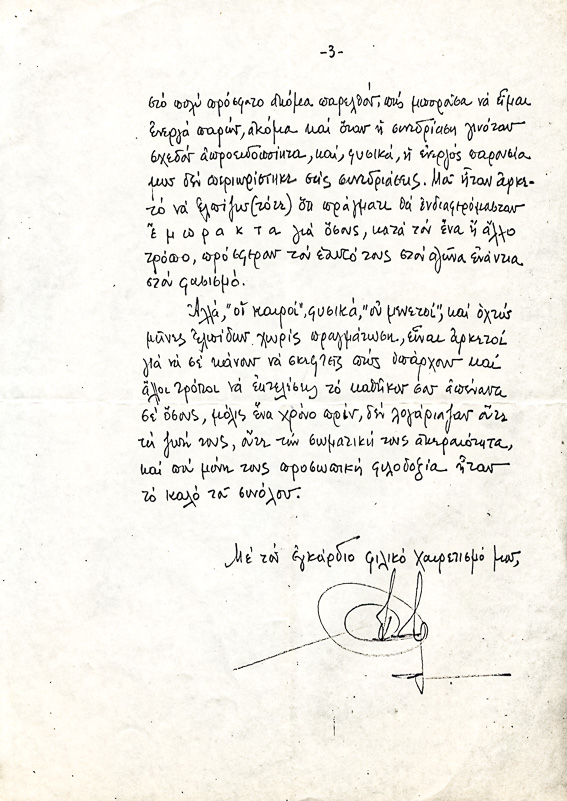 -3-
στό πολύ πρόσφατο ἀκόμα παρελθόν, πώς μποροῦσα νά εἶμαι
ἐνεργά παρών, ἀκόμα καί ὅταν ἡ συνεδρίαση γινόταν
σχεδόν ἀπροειδοποίητα, καί, φυσικά, ἡ ἐνεργός παρουσία
μου δέν περιωρίστηκε στίς συνεδριάσεις. Μοῦ ἦταν ἀρκε-
τό νά ἐλπίζω (τότε) ὅτι πράγματι θά ἐνδιαφερόμασταν
ἔμπρακτα γιά ὅσους, κατά τόν ἕνα ἤ ἄλλο
τρόπο, πρόσφεραν τόν ἑαυτό τους στόν ἀγῶνα ἐνάντια
στόν φασισμό.
Ἀλλά, "οἱ καιροί", φυσικά, "οὐ μενετοί", καί ὀχτώ
μῆνες ἐλπίδων χωρίς πραγμάτωση, εἶναι ἀρκετοί
γιά νά σέ κάνουν νά σκεφτεῖς πώς ὑπάρχουν καί
ἄλλοι τρόποι νά ἐκτελέσεις τό καθῆκον σου ἀπέναντι
σέ ὅσους, μόλις ἕνα χρόνο πρίν, δέν λογάριαζαν οὔτε
τή ζωή τους, οὔτε τήν σωματική τους ἀκεραιότητα,
καί πού μόνη τους προσωπική φιλοδοξία ἦταν
τό καλό τοῦ συνόλου.
Μέ τόν ἐγκάρδιο φιλικό χαιρετισμό μου,